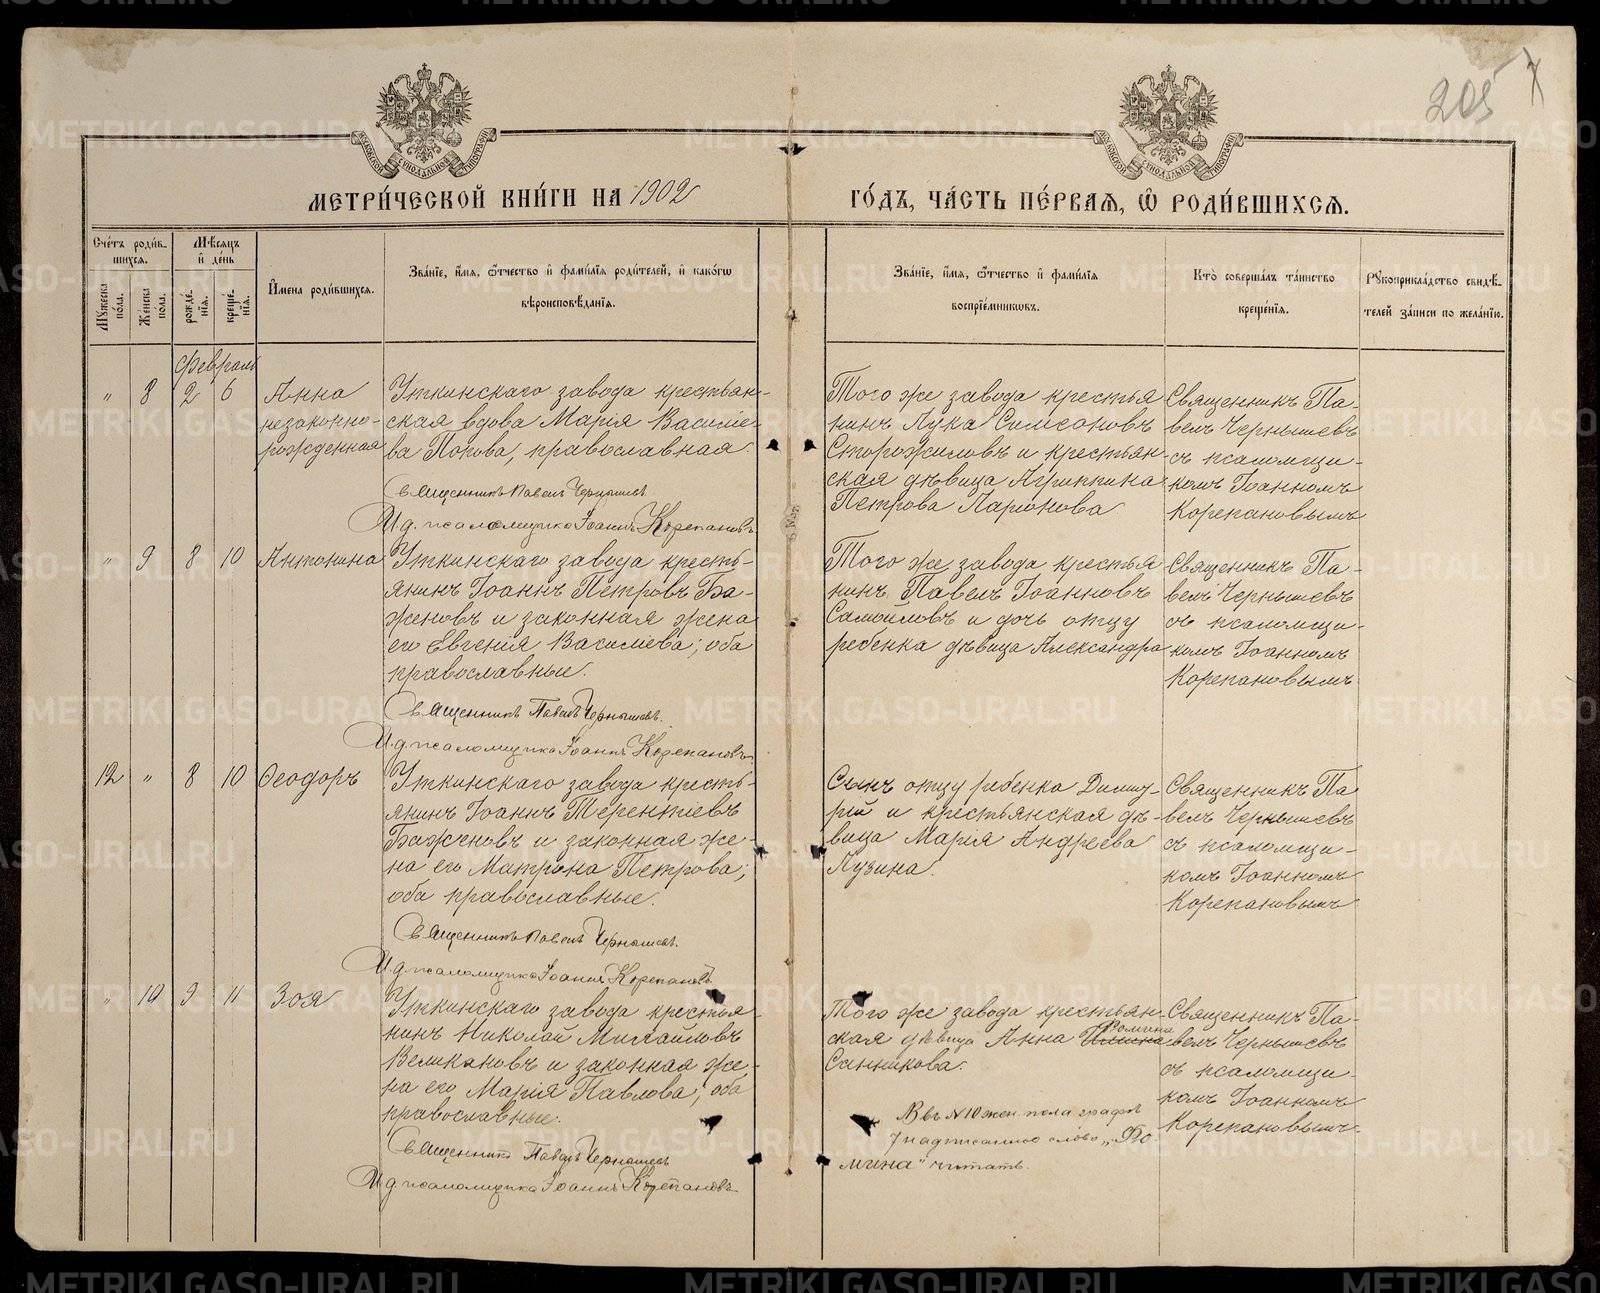 205
МЕТРИ́ЧЕСКОЙ КНИ́ГИ НА 1902
ГО́ДЪ, ЧА́СТЬ ПЕ́РВАѦ, Ѿ РОДИ́ВШИХСѦ.
Сче́тъ роди́в-
шихсѧ.
Мꙋжеска по́ла.
Же́нска по́ла.
Мѣ́сѧцъ
и҆ де́нь
рожде́-
нїѧ.
креще́-
нїѧ.
И҆мена роди́вшихсѧ.
Зва́нїе, и҆́мѧ, ѻ҆́тчество и҆ фами́лїѧ роди́телей, и҆ како́гѡ
вѣроисповѣ́данїѧ.
Зва́нїе, и҆́мѧ, ѻ҆́тчество и҆ фами́лїѧ
воспрїе́мниковъ.
Кто̀ соверша́лъ та́инство
креще́нїѧ.
Рꙋкоприкла́дство свидѣ́-
телей за́писи по жела́нїю.
Февраль
" 8 2 6
Анна
незаконно-
рожденная
Уткинскаго завода крестьян-
ская вдова Марія Василье-
ва Попова, православная.
Священникъ Павелъ Чернышевъ
И. д. псаломщика Іоаннъ Корепановъ
Того же завода крестья
нинъ Лука Симеоновъ
Сторожиловъ и крестьян-
ская дѣвица Агриппина
Петрова Ларіонова
Священникъ Па-
велъ Чернышевъ
съ псаломщи-
комъ Іоанномъ
Корепановымъ
" 9 8 10
Антонина
Уткинскаго завода кресть-
янинъ Іоаннъ Петровъ Ба-
женовъ и законная жена
его Евгенія Васильева; оба
православные.
Священникъ Павелъ Чернышевъ.
И. д. псаломщика Іоаннъ Корепановъ
Того же завода крестья
нинъ Павелъ Іоанновъ
Самойловъ и дочь отцу
ребенка дѣвица Александра
Священникъ Па-
велъ Чернышевъ
съ псаломщи-
комъ Іоанномъ
Корепановымъ
12 " 8 10
Ѳеодоръ
Уткинскаго завода кресть-
янинъ Іоаннъ Терентіевъ
Баженовъ и законная же-
на его Матрона Петрова;
оба православные.
Священникъ Павелъ Чернышевъ.
И. д. псаломщика Іоаннъ Корепановъ
Сынъ отцу ребенка Дими-
трій и крестьянская дѣ-
вица Марія Андреева
Пузина.
Священникъ Па
велъ Чернышевъ
съ псаломщи-
комъ Іоанномъ
Корепановымъ
" 10 9 11
Зоя
Уткинскаго завода крестья-
нинъ Николай Михайловъ
Великановъ и законная же-
на его Марія Павлова; оба
православные.
Священникъ Павелъ Чернышевъ
И д псаломщика Іоаннъ Корепановъ
Того же завода крестьян-
ская дѣвица Анна Ѳомина
Санникова.
Священникъ Па-
велъ Чернышевъ
съ псаломщи-
комъ Іоанномъ
Корепановымъ
въ № 10 жен. пола графѣ
7 надписанное слово „Ѳо
мина" читать.
METRIKI.GASO-URAL.RU